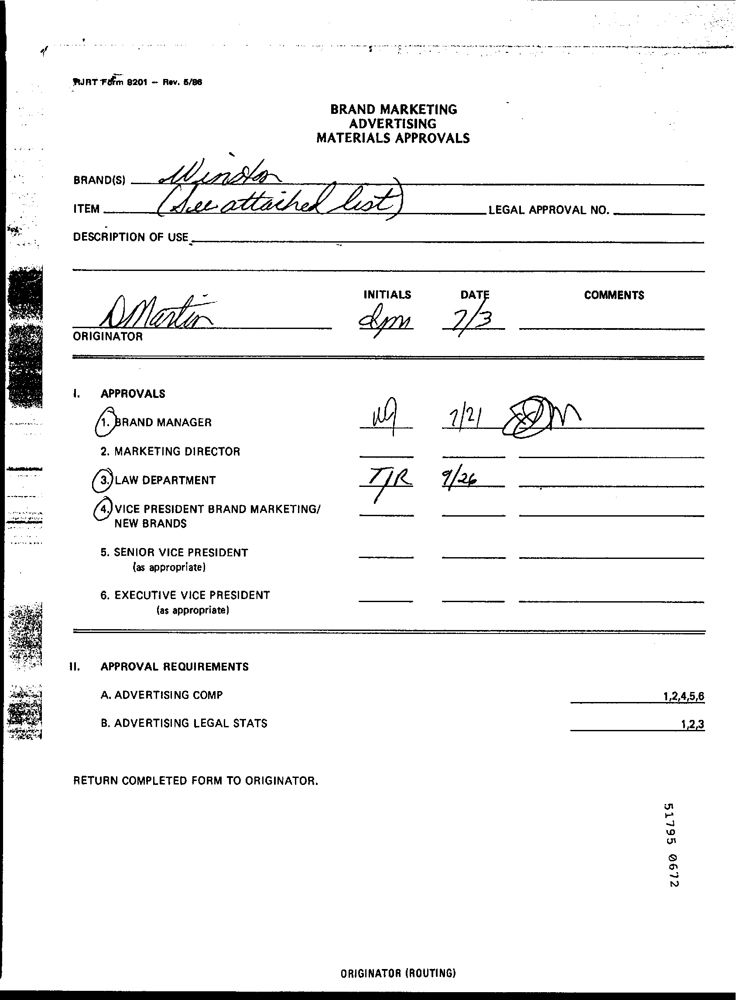 RJRT Form 8201 - Rev. 5/86
BRAND MARKETING
ADVERTISING
MATERIALS APPROVALS
BRAND(S) Winston
ITEM (See attached list) LEGAL APPROVAL NO.
DESCRIPTION OF USE
INITIALS DATE COMMENTS
DMartin dpm 7/3
ORIGINATOR
I. APPROVALS
1. BRAND MANAGER 7/21
2. MARKETING DIRECTOR
3. LAW DEPARTMENT TJR 9/26
4. VICE PRESIDENT BRAND MARKETING/
NEW BRANDS
5. SENIOR VICE PRESIDENT
(as appropriate)
6. EXECUTIVE VICE PRESIDENT
(as appropriate)
II. APPROVAL REQUIREMENTS
A. ADVERTISING COMP 1,2,4,5,6
B. ADVERTISING LEGAL STATS 1,2,3
RETURN COMPLETED FORM TO ORIGINATOR.
51795 0672
ORIGINATOR (ROUTING)